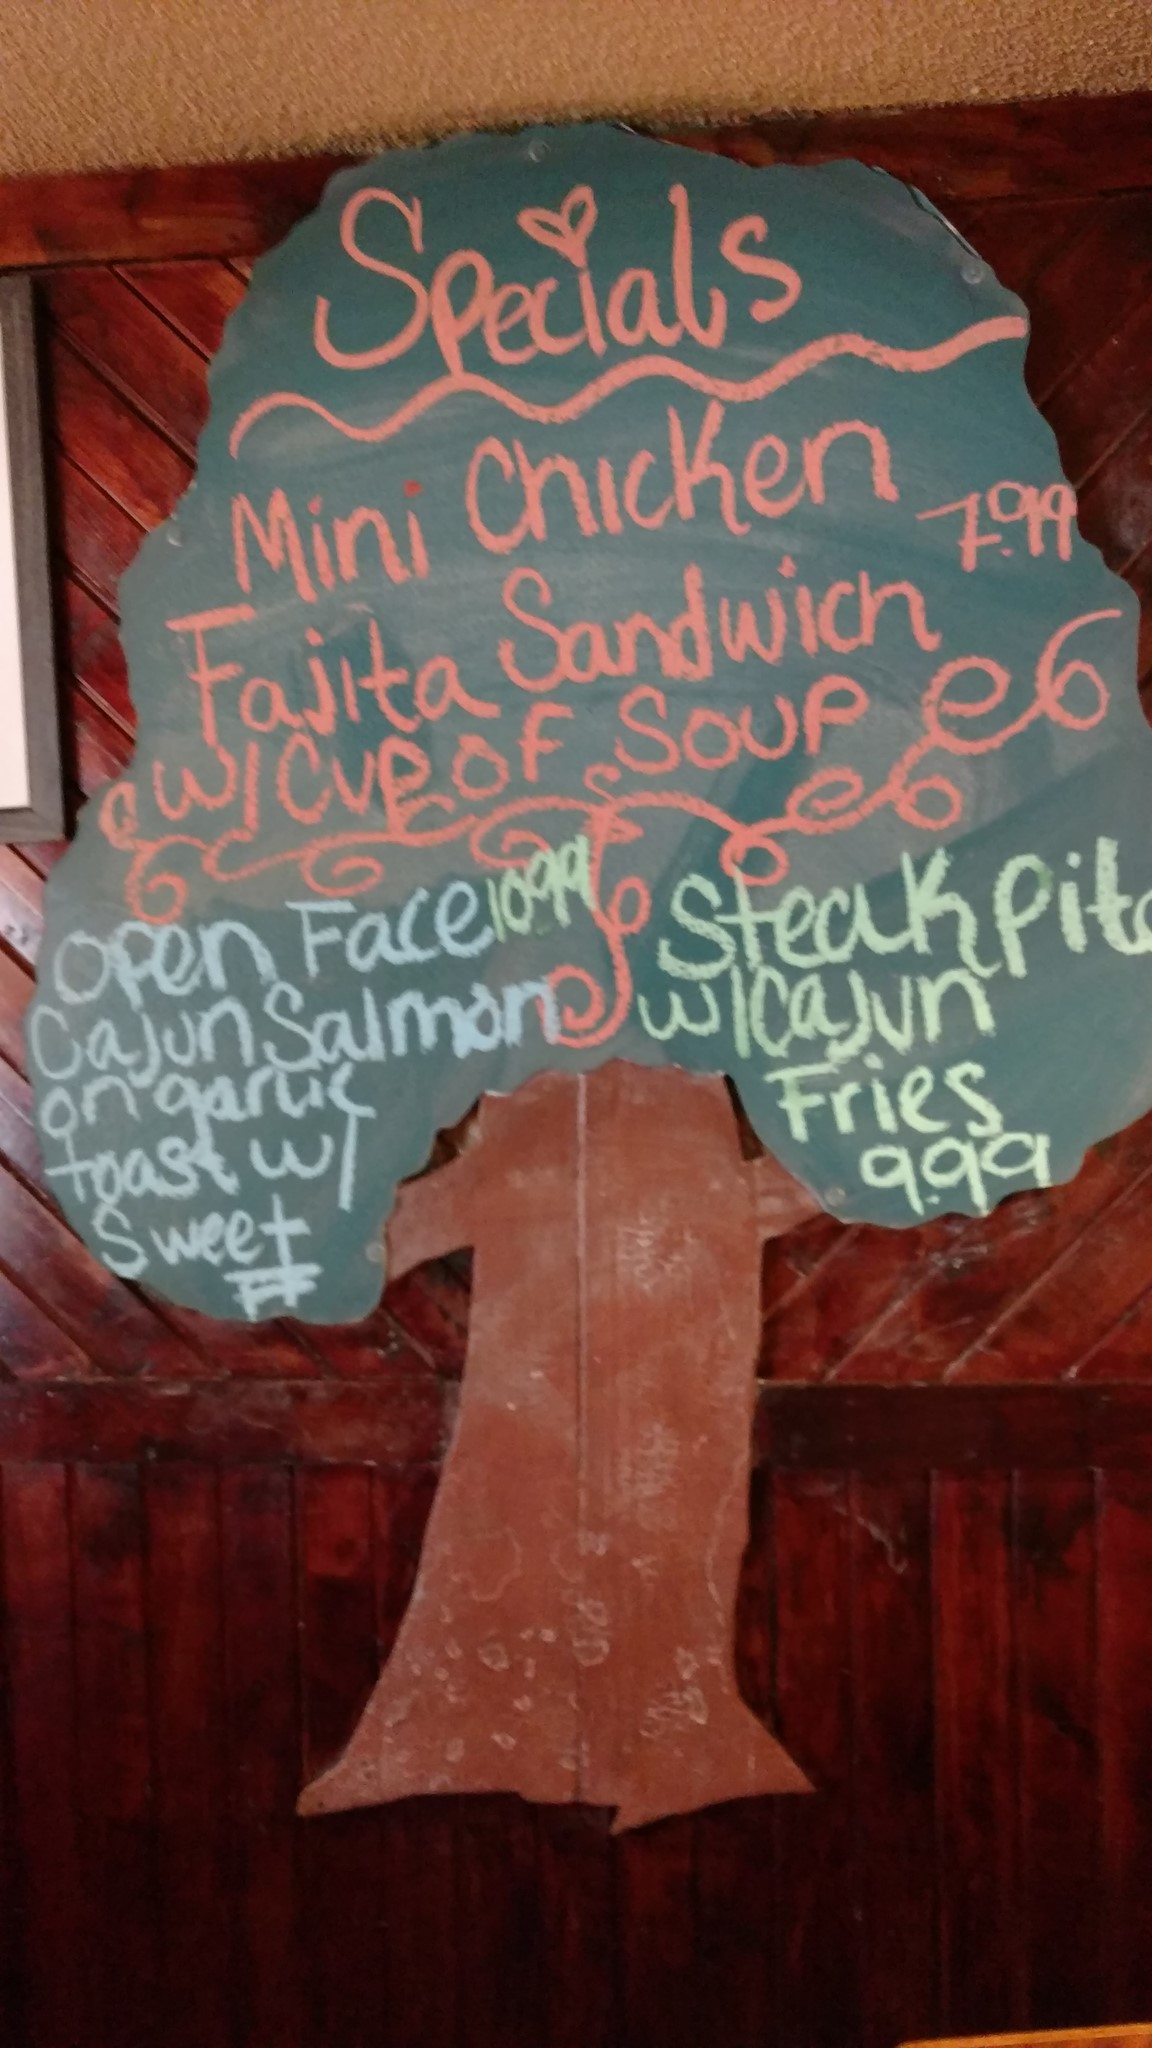 Specials
Mini Chicken 7.99
Fajita Sandwich
w/ Cup of Soup
Open Face 10.99
Cajun Salmon
on garlic
toast w/
Sweet
FF
Steak Pita
w/ Cajun
Fries
9.99